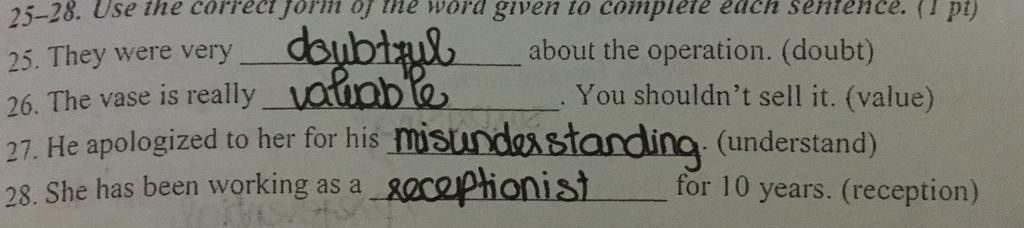 25–28. Use the correct form of the word given to complete each sentence. (1 pt)
25. They were very doubtful about the operation. (doubt)
26. The vase is really valuable. You shouldn't sell it. (value)
27. He apologized to her for his misunderstanding. (understand)
28. She has been working as a receptionist for 10 years. (reception)